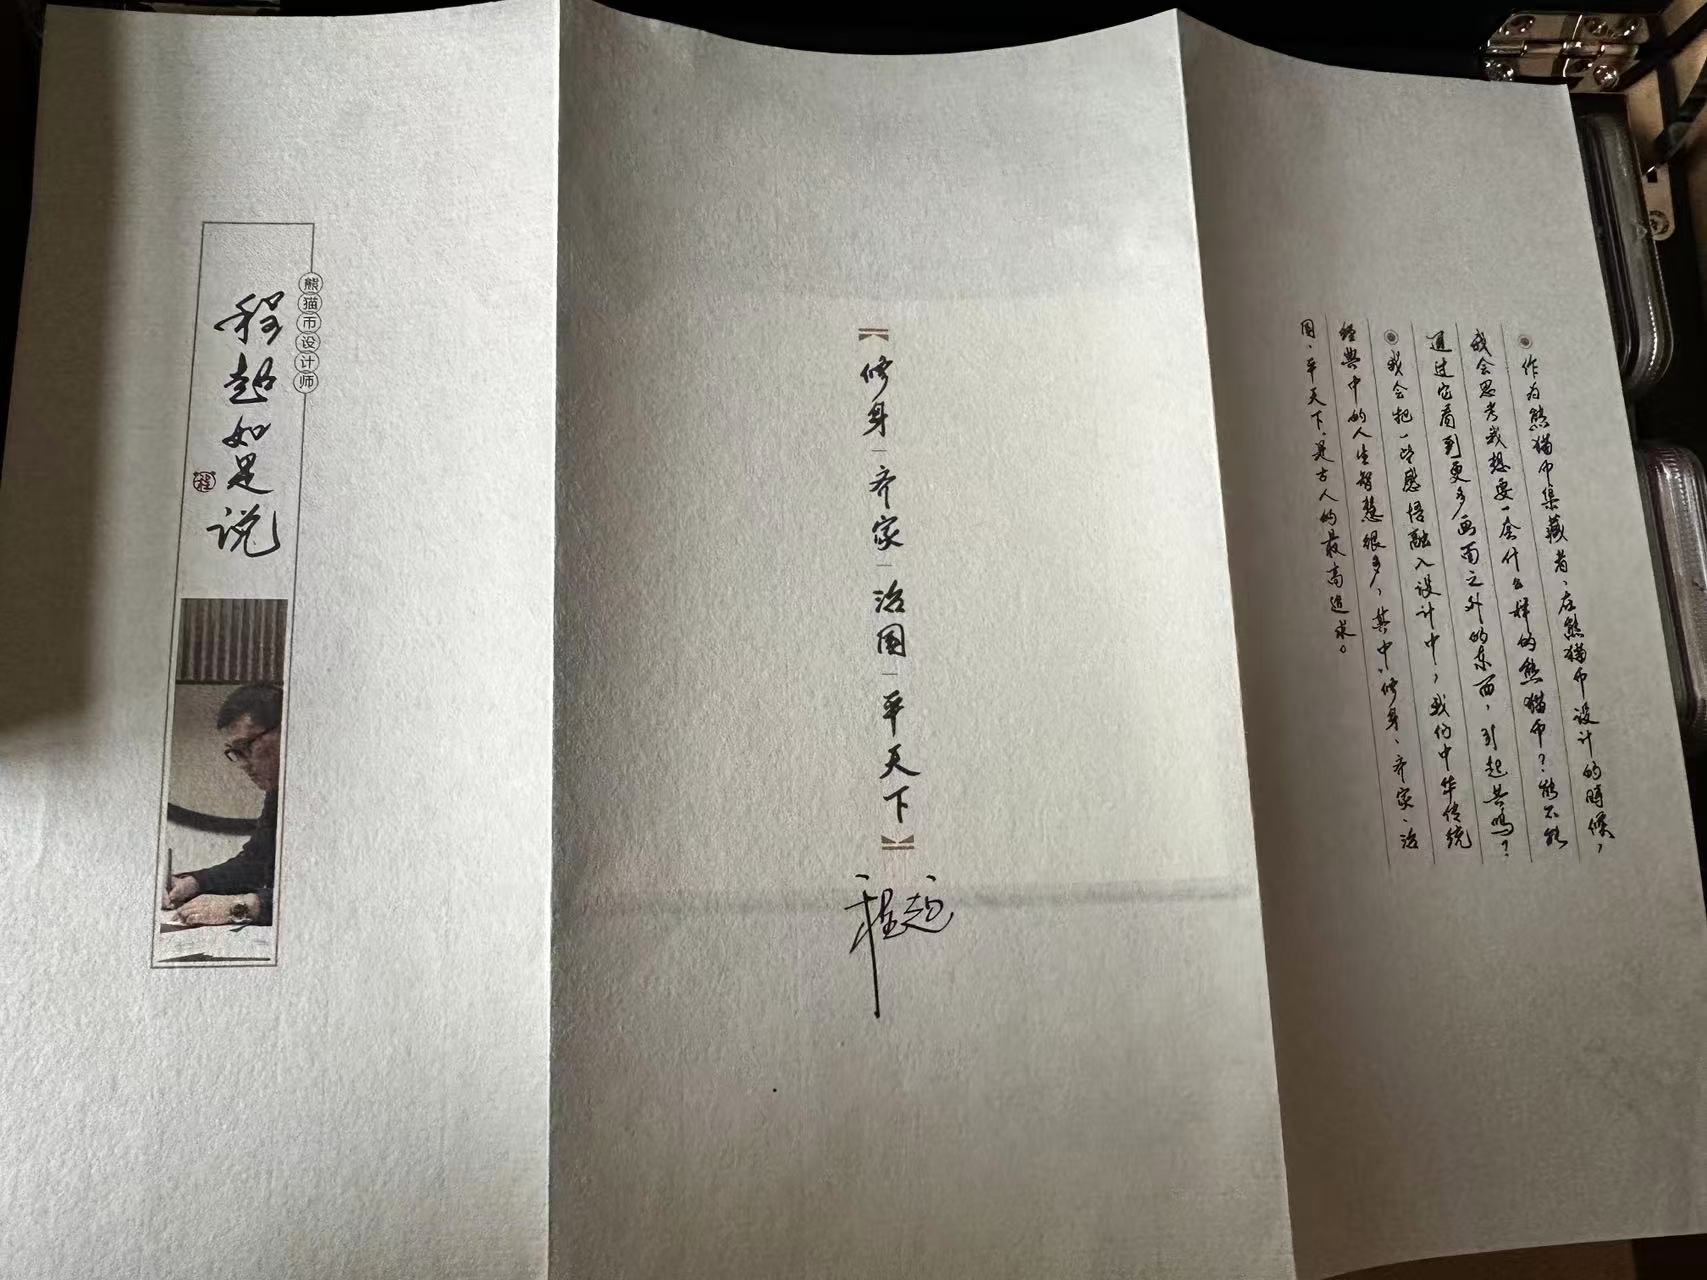 作为熊猫币集藏者、在熊猫币设计的時候，
我会思考我想要一套什么样的熊猫币？能不能
通过它看到更多画面之外的东西，引起共鸣？
我会把一些感悟融入设计中，我们中华传统
经典中的人生智慧很多，其中"修身、齐家、治
国、平天下"是古人的最高追求。
【修身|齐家|治国|平天下】
程超
熊猫币设计师
程超如是说
程